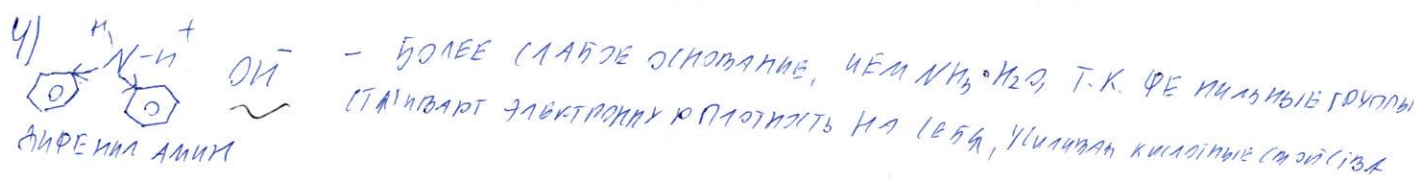 4) H N-H + OH⁻ - БОЛЕЕ СЛАБОЕ ОСНОВАНИЕ, ЧЕМ NH₃·H₂O, Т.К. ФЕНИЛЬНЫЕ ГРУППЫ
СТЯГИВАЮТ ЭЛЕКТРОННУЮ ПЛОТНОСТЬ НА СЕБЯ, УСИЛИВАЯ КИСЛОТНЫЕ СВОЙСТВА
ДИФЕНИЛ АМИН